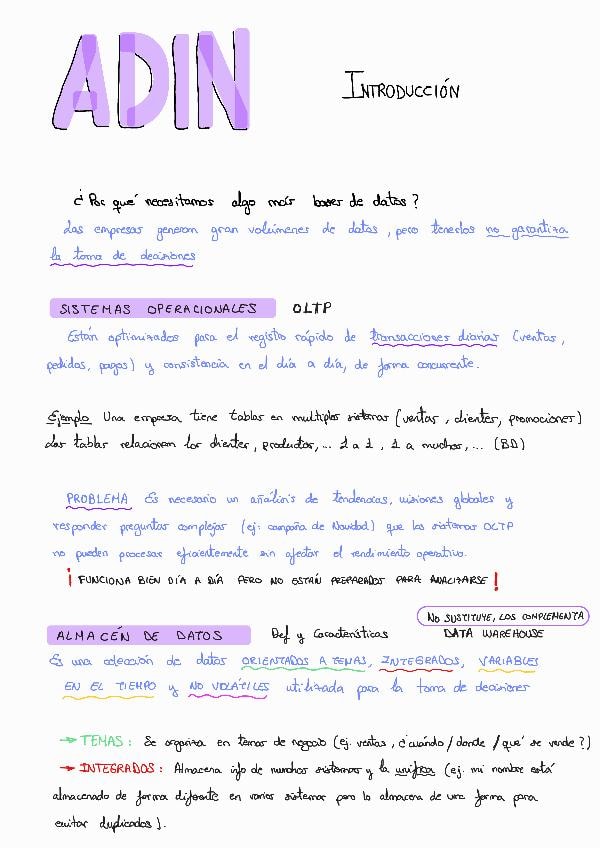 ADIN
INTRODUCCIÓN
¿Por qué necesitamos algo más bases de datos?
Las empresas generan gran volúmenes de datos, pero tenerlos no garantiza
la toma de decisiones
SISTEMAS OPERACIONALES OLTP
Están optimizados para el registro rápido de transacciones diarias (ventas,
pedidos, pagos) y consistencia en el día a día, de forma concurrente.
Ejemplo Una empresa tiene tablas en multiples sistemas (ventas, clientes, promociones)
Las tablas relacionan los clientes, productos,... 1 a 1, 1 a muchos,... (BD)
PROBLEMA Es necesario un análisis de tendencias, visiones globales y
responder preguntas complejas (ej: campaña de Navidad) que los sistemas OLTP
no pueden procesar eficientemente sin afectar el rendimiento operativo.
¡FUNCIONA BIEN DÍA A DÍA PERO NO ESTÁN PREPARADOS PARA ANALIZARSE!
NO SUSTITUYE, LOS COMPLEMENTA
ALMACÉN DE DATOS Def y Características DATA WAREHOUSE
Es una colección de datos ORIENTADOS A TEMAS, INTEGRADOS, VARIABLES
EN EL TIEMPO y NO VOLÁTILES utilizada para la toma de decisiones
→ TEMAS: Se organiza en temas de negocio (ej. ventas, ¿cuándo/donde/qué se vende?)
→ INTEGRADOS: Almacena info de muchos sistemas y la unifica (ej. mi nombre está
almacenado de forma diferente en varios sistemas pero lo almacena de una forma para
evitar duplicados).